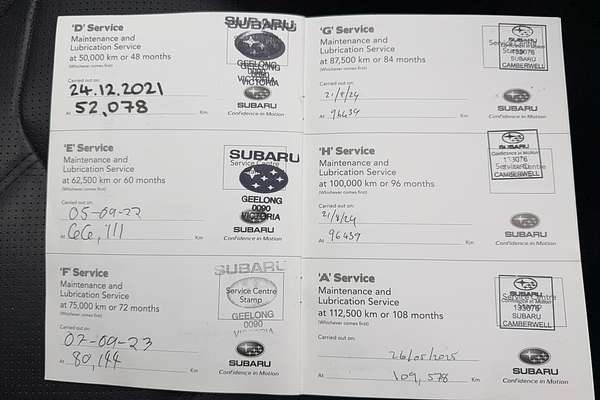 'D' Service
Maintenance and
Lubrication Service
at 50,000 km or 48 months
(Whichever comes first)
Carried out on:
24.12.2021
At 52,078 Km
SUBARU
GEELONG
0090
VICTORIA
SUBARU
Confidence in Motion
'E' Service
Maintenance and
Lubrication Service
at 62,500 km or 60 months
(Whichever comes first)
Carried out on:
05-09-22
At 66,111 Km
SUBARU
Service Centre
GEELONG
0090
VICTORIA
SUBARU
Confidence in Motion
'F' Service
Maintenance and
Lubrication Service
at 75,000 km or 72 months
(Whichever comes first)
Carried out on:
07-09-23
At 80,144 Km
SUBARU
Service Centre
Stamp
GEELONG
0090
VICTORIA
SUBARU
Confidence in Motion
'G' Service
Maintenance and
Lubrication Service
at 87,500 km or 84 months
(Whichever comes first)
Carried out on:
21/8/24
At 96439 Km
SUBARU
Service Centre
133076
SUBARU
CAMBERWELL
SUBARU
Confidence in Motion
'H' Service
Maintenance and
Lubrication Service
at 100,000 km or 96 months
(Whichever comes first)
Carried out on:
21/8/24
At 96439 Km
SUBARU
Confidence in Motion
133076
Service Centre
CAMBERWELL
SUBARU
Confidence in Motion
'A' Service
Maintenance and
Lubrication Service
at 112,500 km or 108 months
(Whichever comes first)
Carried out on:
26/05/2025
At 109,578 Km
SUBARU
Confidence in Motion
Service Centre
133076
SUBARU
CAMBERWELL
SUBARU
Confidence in Motion